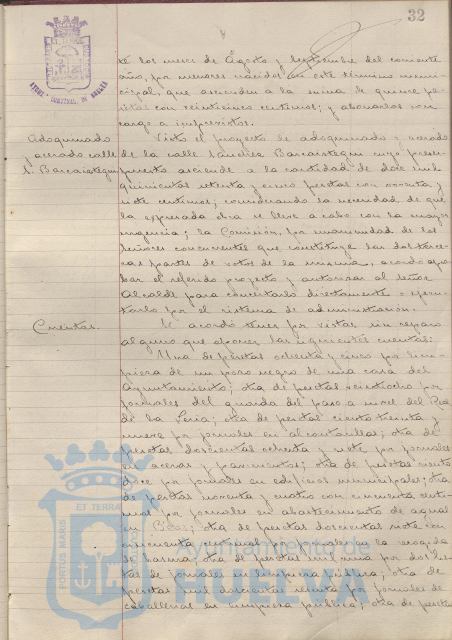 32
AYUNT. CONSTNAL. DE HUELVA
de los meses de Agosto y Septiembre del corriente
año, por menores nacidos en este término muni-
cipal, que ascienden a la suma de quince pe-
setas con veinticinco centimos; y abonarlos con
cargo a imprevistos.
Adoquinado
y acerado calle
S. Barcaistegui
Visto el proyecto de adoquinado y acerado
de la calle Sanchez Barcaistegui cuyo presu-
puesto asciende a la cantidad de dos mil
quinientas setenta y cinco pesetas con noventa y
siete centimos; considerando la necesidad de que
la expresada obra se lleve a cabo con la mayor
urgencia; la Comisión, por unanimidad de los
Señores concurrentes que constituye las dos terce-
ras partes de votos de la misma, acordó apro-
bar el referido proyecto y autorizar al Señor
Alcalde para concertarlo directamente o ejecu-
tarlo por el sistema de administración.
Cuentas.
Se acordó tener por vistas sin reparo
alguno que oponer las siguientes cuentas:
Una de pesetas ochenta y cinco por lim-
pieza de un pozo negro de una casa del
Ayuntamiento; otra de pesetas veintiocho por
jornales del guarda del paso a nivel del
de la Feria; otra de pesetas ciento treinta y
nueve por jornales en alcantarillas; otra de
pesetas doscientas ochenta y siete por jornales
en aceras y pavimentos; otra de pesetas ciento
doce por jornales en edificios municipales; otra
de pesetas noventa y cuatro con cincuenta centi-
mos por jornales en abastecimiento de aguas
en; otra de pesetas doscientas siete con
cincuenta centimos por jornales en la recogida
de basura; otra de pesetas mil una por dos lis-
tas de jornales en limpieza pública; otra de
pesetas mil doscientas setenta por jornales de
caballerías en limpieza pública; otra de pesetas
ET TERRA
PORTUS MARIS
Ayuntamiento de
HUELVA